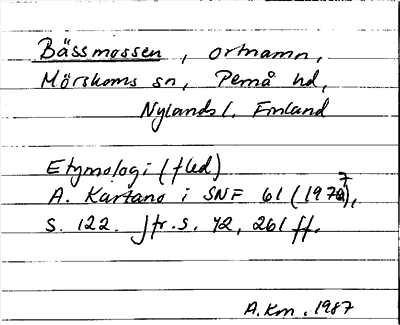 Bässmossen, ortnamn,
Mörskoms sn, Pernå hd,
Nylands l. Finland
Etymologi (fled)
A. Kartano i SNF 61 (1977),
s. 122. Jfr. s. 42, 261 ff.
A.Km. 1987